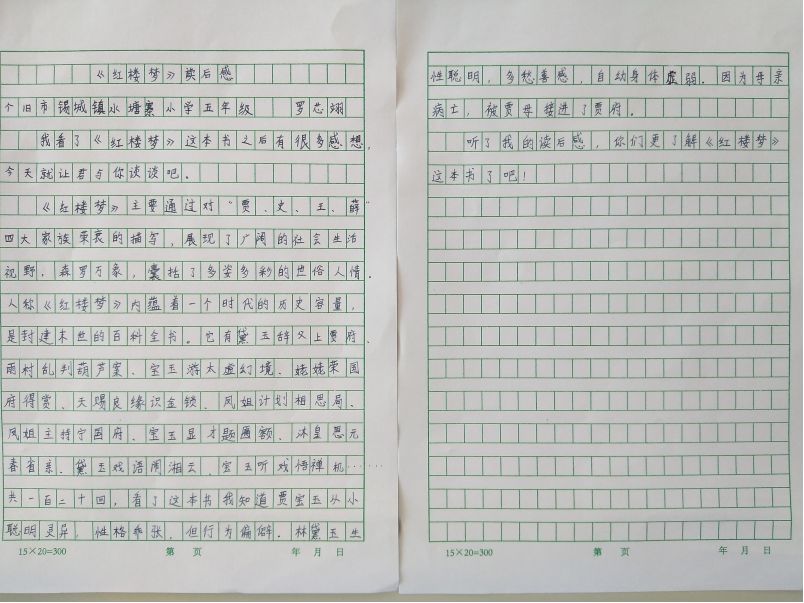 《红楼梦》读后感
个旧市锡城镇水塘寨小学五年级 罗芯翊
我看了《红楼梦》这本书之后有很多感想,
今天就让君与你谈谈吧。
《红楼梦》主要通过对“贾、史、王、薛”
四大家族荣衰的描写,展现了广阔的社会生活
视野,森罗万象,囊括了多姿多彩的世俗人情.
人称《红楼梦》内蕴着一个时代的历史容量,
是封建末世的百科全书。它有黛玉辞父上贾府、
雨村乱判葫芦案、宝玉游太虚幻境、姥姥荣国
府得赏、天赐良缘识金锁、凤姐计划相思局、
凤姐主持宁国府、宝玉显才题匾额、沐皇恩元
春省亲、黛玉戏语闹湘云、宝玉听戏悟禅机……
共一百二十回,看了这本书我知道贾宝玉从小
聪明灵异,性格乖张,但行为偏僻.林黛玉生
性聪明,多愁善感,自幼身体虚弱.因为母亲
病亡,被贾母接进了贾府。
听了我的读后感,你们更了解《红楼梦》
这本书了吧!
15×20=300 第 页 年 月 日
15×20=300 第 页 年 月 日